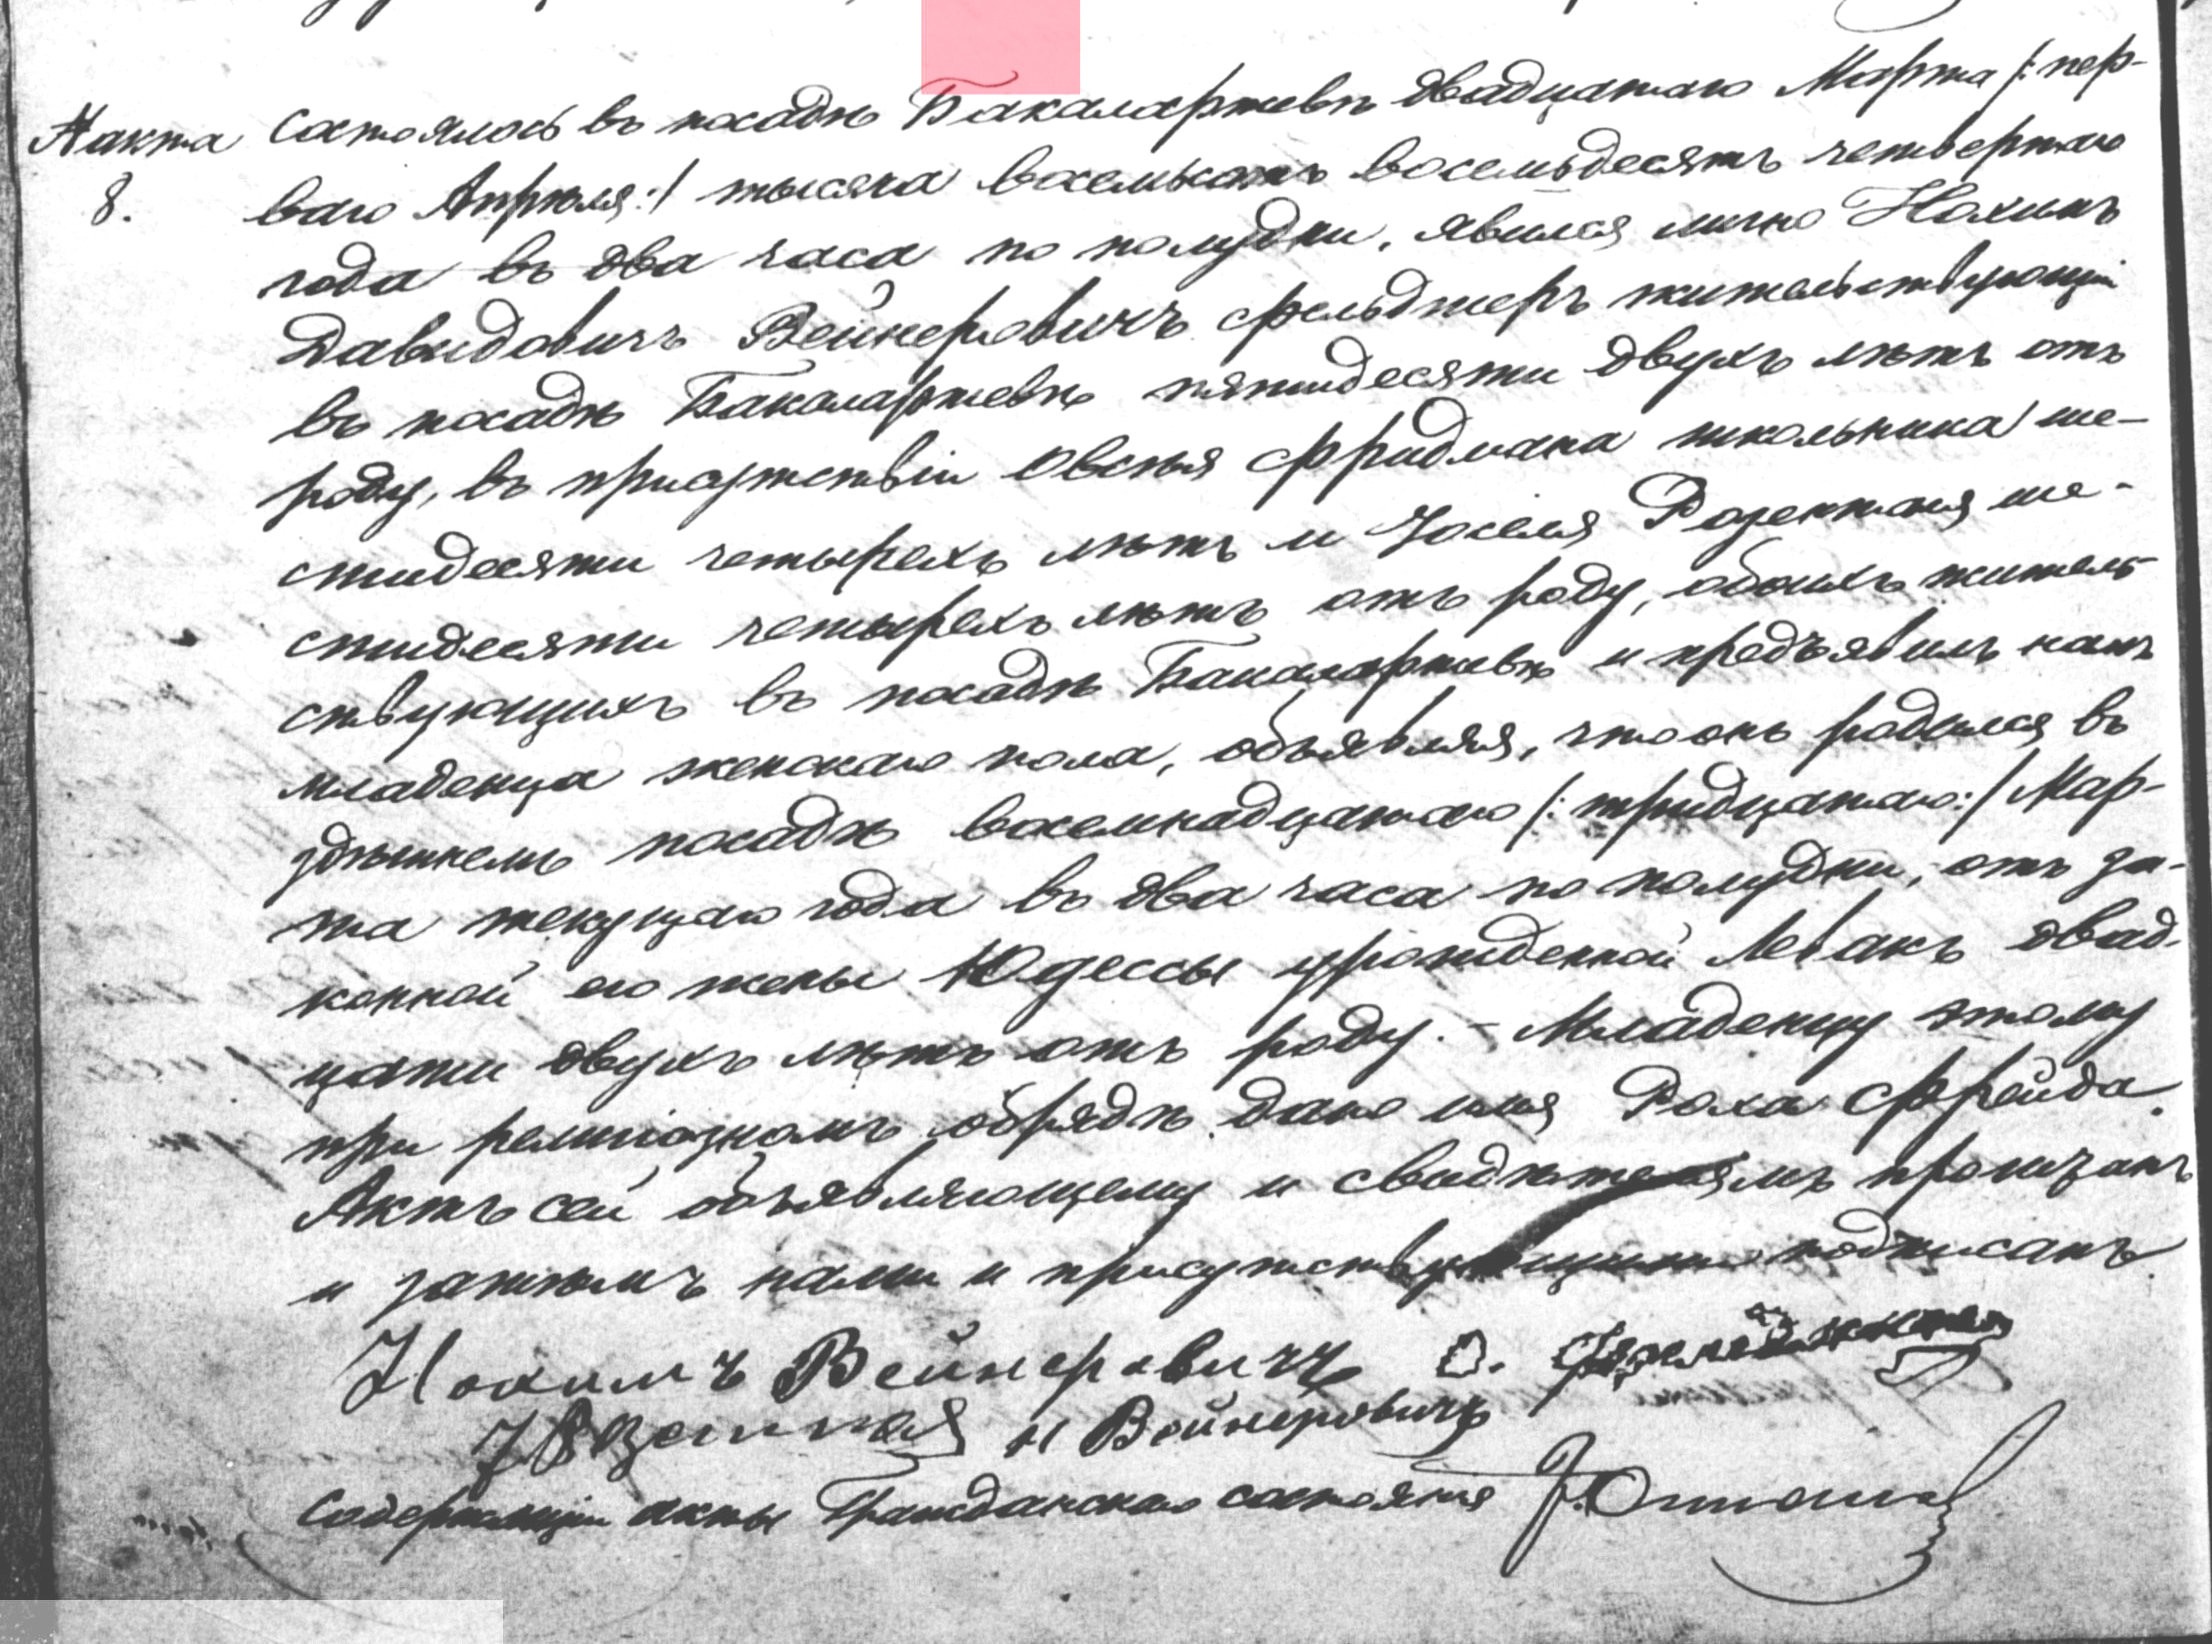 № акта
8.
Состоялось въ посадѣ Бакаларжевѣ двадцатаго Марта /: пер-
ваго Апрѣля :/ тысяча восемьсотъ восемьдесятъ четвертаго
года въ два часа по полудни, явился лично Нохимъ
Давидовичъ Вейнеровичъ фельдшеръ жительствующій
въ посадѣ Бакаларжевѣ пятидесяти двухъ лѣтъ отъ
роду, въ присутствіи Овсѣя Фридмана школьника ше-
стидесяти четырехъ лѣтъ и Іоселя Розенталя ше-
стидесяти четырехъ лѣтъ отъ роду, обоихъ житель-
ствующихъ въ посадѣ Бакаларжевѣ и предъявилъ намъ
младенца женскаго пола, объявляя, что онъ родился въ
здѣшнемъ посадѣ восемнадцатаго /: тридцатаго :/ Мар-
та текущаго года въ два часа по полудни, отъ за-
конной его жены Юдессы урожденной Левакъ двад-
цати двухъ лѣтъ отъ роду. - Младенцу этому
при религіозномъ обрядѣ дано имя Роха Фрейда.
Актъ сей объявляющему и свидѣтелямъ прочитанъ
и затѣмъ нами и присутствующими подписанъ
Нохимъ Вейнеровичъ О.
и Вейнеровичъ
Содержащій акты Гражданскаго состоянія